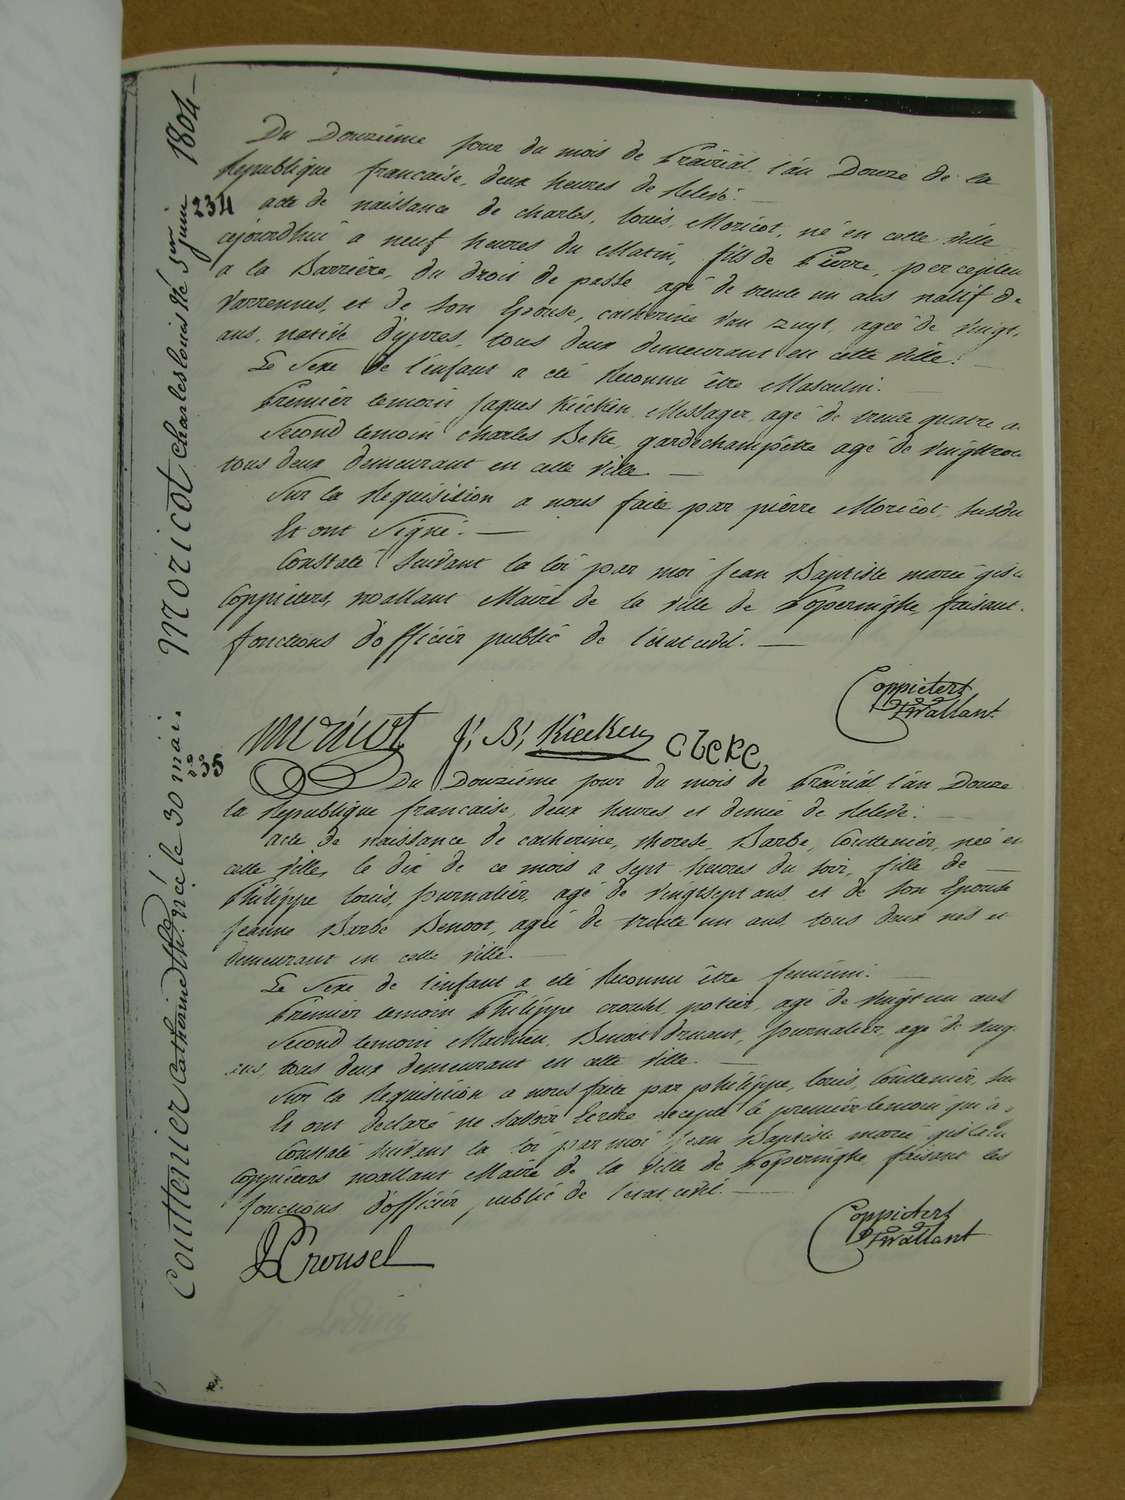 Moricot charles louis Né 1er juin 1804
234
Du Douzième jour du mois de Prairial l'an Douze de la
Republique francaise, deux heures de Relevé.
acte de naissance de charles, louis, Moricot, né en cette ville
cejourdhui a neuf heures du Matin, fils de Pierre, percepteu
a la Barrière, du droit de passe agé de trente un ans natif de
Varrennes, et de son Epouse, catherine Van Zuyt, agée de Vingt.
ans, native d'ypres, tous deux demeurant en cette ville.
Le Sexe de l'enfant a eté Reconnu être Masculin.
Premier temoin Jaques Kiecken Messager agé de trente quatre a
Second temoin charles Beke gardechampêtre agé de Vingttroi
tous deux demeurant en cette ville
Sur la Requisition a nous faite par pierre Moricot, Susdu
Et ont Signé.
Constaté Suivant la loi par moi Jean Baptiste marie gisle
Coppieters, wallant Maire de la ville de Poperinghe, faisant
fonctions d'officier public de l'état civil.
Coppieters
Twallant
moricot J, B, Kiecken C beke
Couttenier Catherine Th. née le 30 mai.
235
Du Douzième jour du mois de Prairial l'an Douze
la Republique francaise, deux heures et demie de Relevé.
acte de naissance de catherine, therese, Barbe, Couttenier, née en
cette ville, le dix de ce mois a sept heures du soir, fille de
Philippe louis, Journalier, agé de Vingtsept ans et de Son Epouse
Jeanne Barbe Benoot, agée de trente un ans, tous deux nés et
demeurant en cette ville.
Le Sexe de l'enfant a eté Reconnu être feminin.
Premier temoin Philippe crousel, potier, agé de Vingt un ans
Second temoin Mathieu, Benoit Druant, Journalier, agé de Ving
ans, tous deux demeurant en cette ville.
Sur la Requisition a nous faite par philippe, louis, Couttenier, Su
Et ont declaré ne Savoir Ecrire excepté le premier temoin qui a
Constaté Suivant la loi par moi Jean Baptiste marie gislein
Coppieters wallant Maire de la ville de Poperinghe, faisant les
fonctions d'officier, public de l'état civil.
Coppieters
Twallant
Crousel